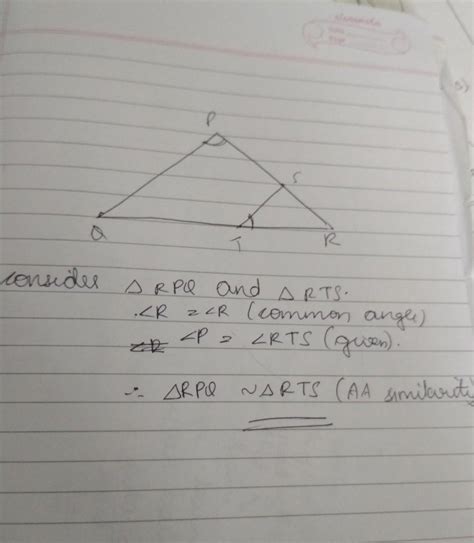 P
S
Q
T
R
consider △ RPQ and △ RTS.
∠R = ∠R (common angle)
∠P = ∠RTS (given).
∴ △RPQ ~ △RTS (AA similarity